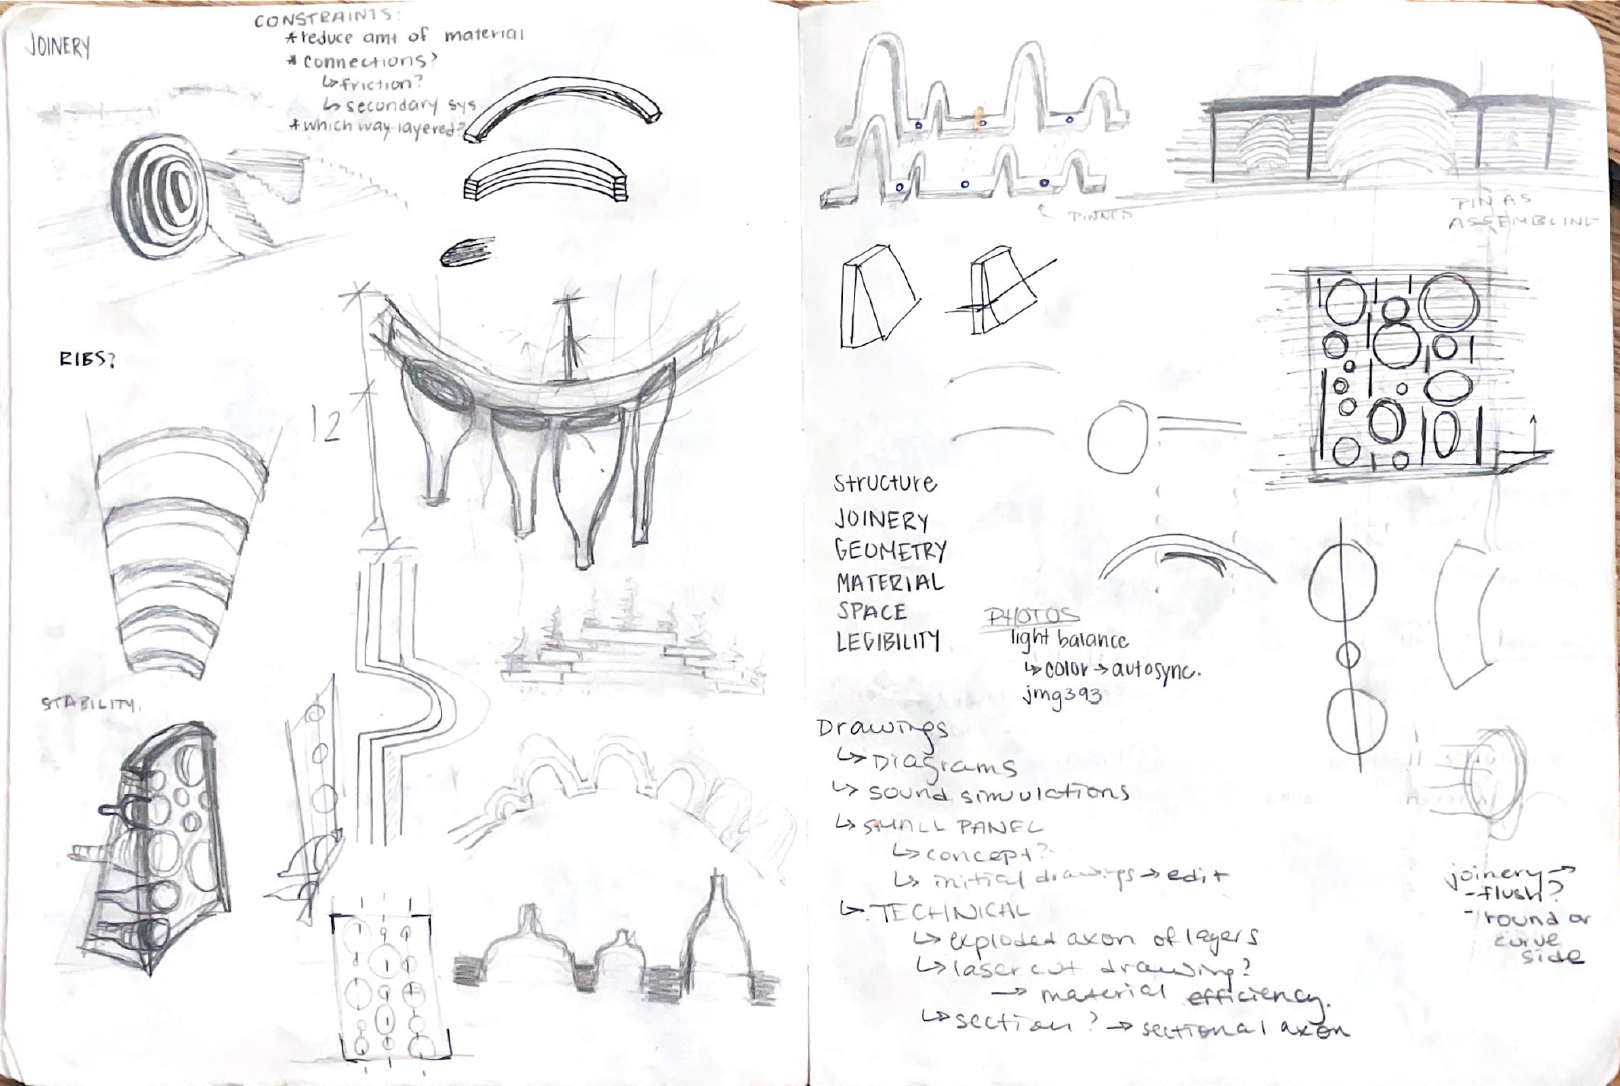 JOINERY
CONSTRAINTS:
* reduce amt of material
* connections?
↳ friction?
↳ secondary sys.
* which way layered?
RIBS?
12
STABILITY.
PINNED
PIN AS
ASSEMBLING
structure
JOINERY
GEOMETRY
MATERIAL
SPACE
LEGIBILITY
PHOTOS
light balance
↳ color → autosync.
jmg393
Drawings
↳ Diagrams
↳ sound simulations
↳ SMALL PANEL
↳ concept?
↳ initial drawings → edit
↳ TECHNICAL
↳ exploded axon of layers
↳ laser cut drawing?
→ material efficiency.
↳ section? → sectional axon
joinery →
- flush?
- round or
curve
side